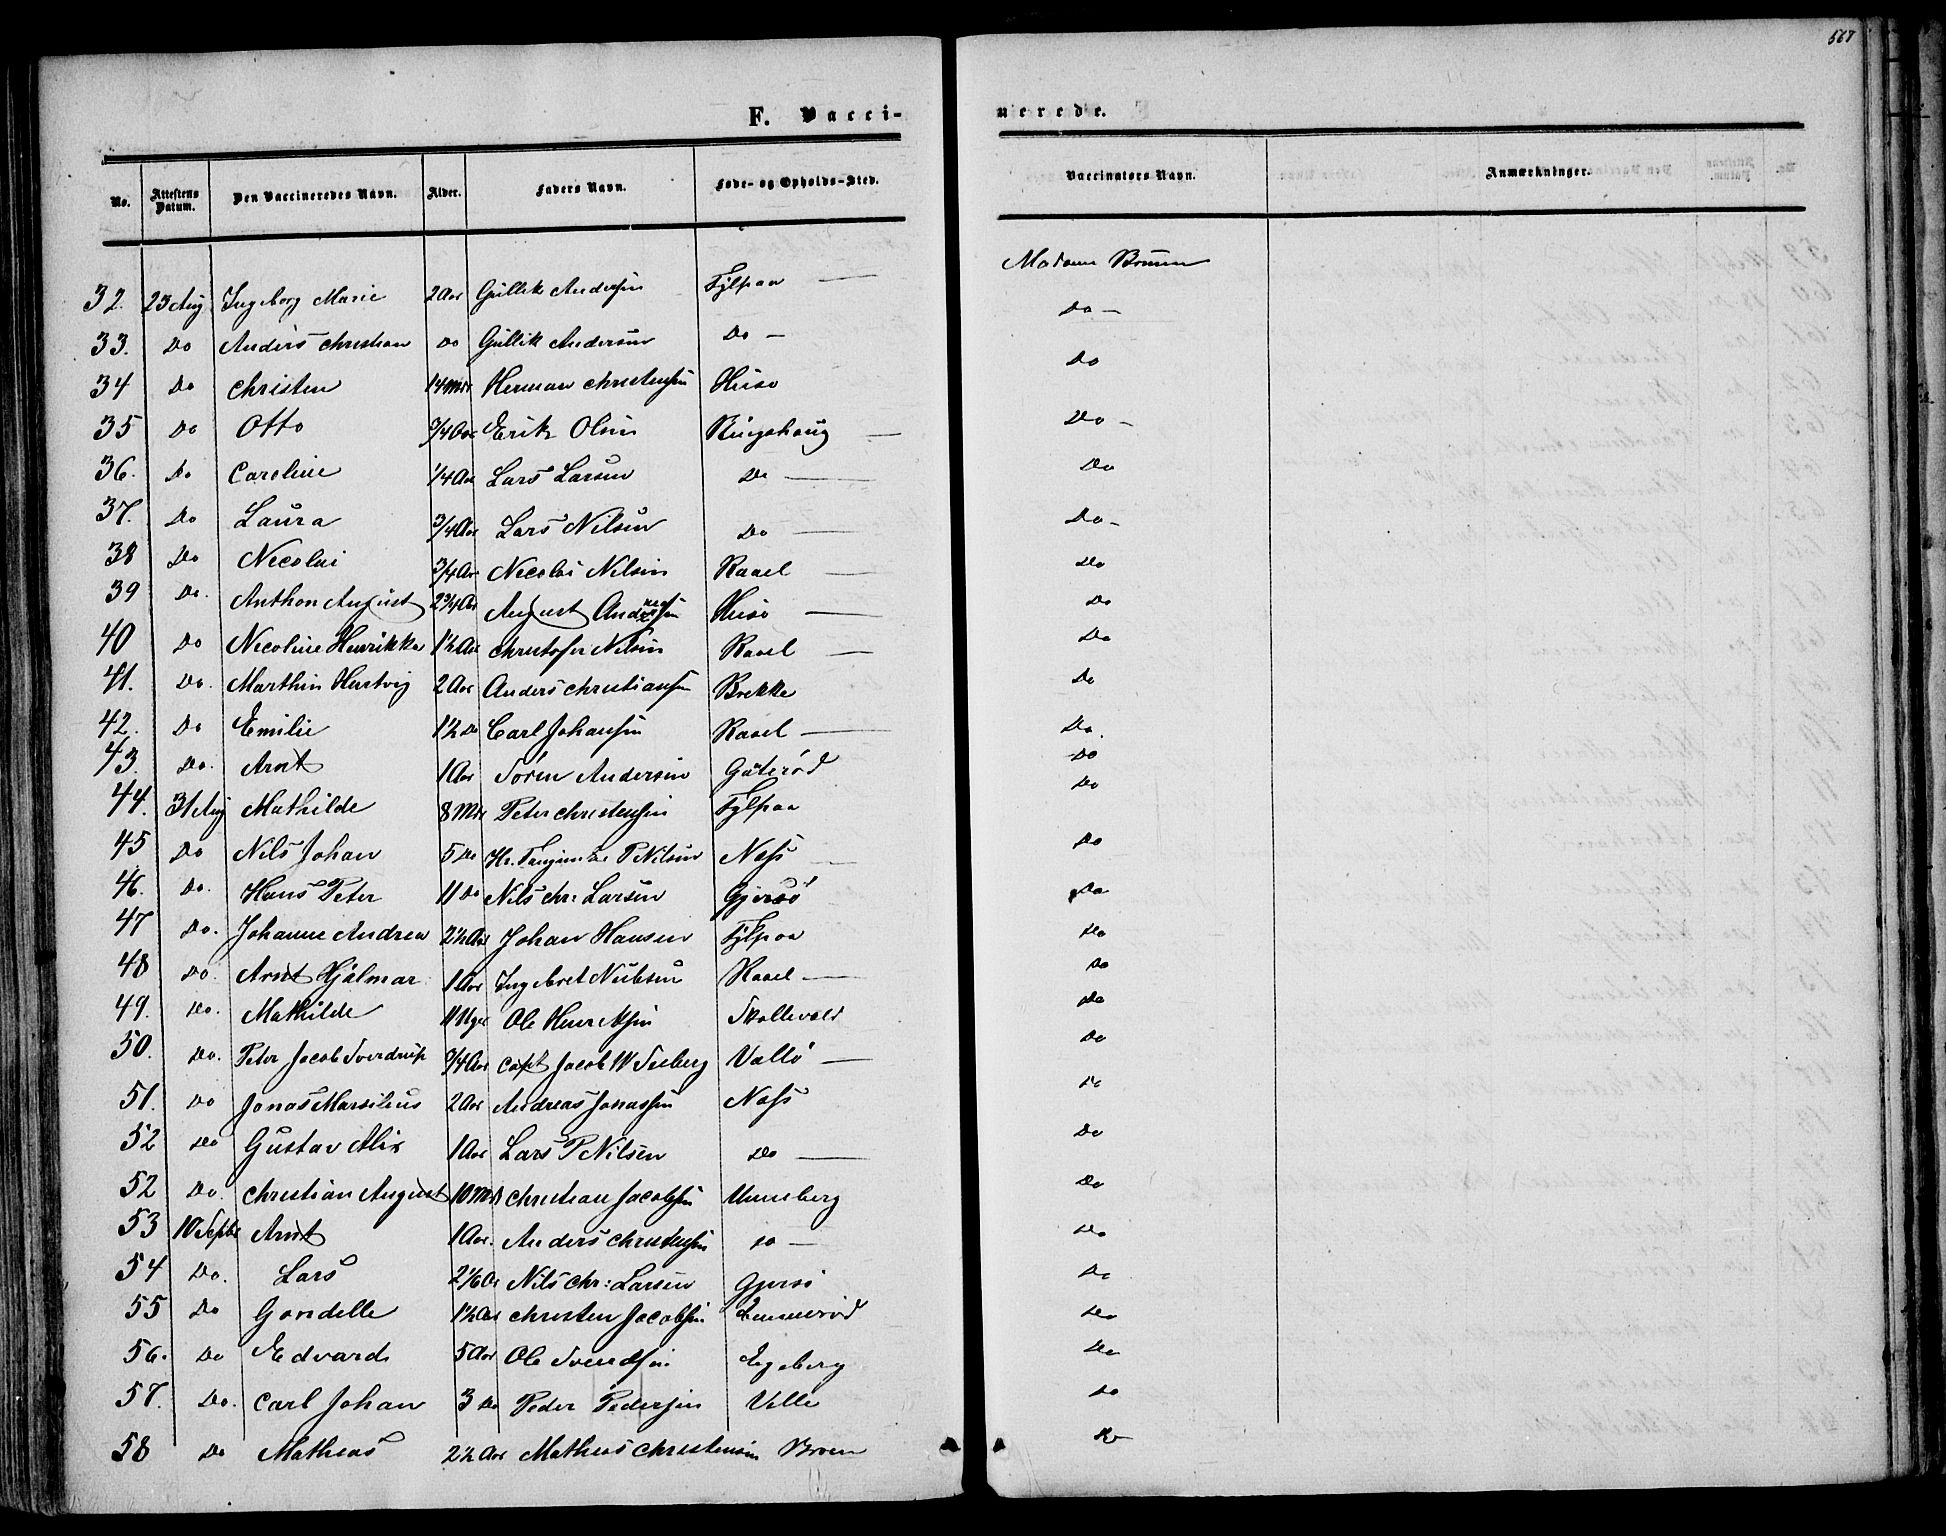 567
F. Vacci-
nerede.
No. Attestens Datum. Den Vaccineredes Navn. Alder. Faders Navn. Føde- og Opholds-Sted. Vaccinators Navn. Anmærkninger.
32. 23 Aug Ingeborg Marie 2 Aar Gullik Andersen Fylpaa — Madam Bruun
33. Do Anders Christian Do Gullik Andersen Do — Do —
34 Do Christen 14 Mdr Herman Christensen Huso Do
35 Do Otto 3/4 Aar Erik Olsen Ringshoug — Do —
36. Do Caroline 1/4 Aar Lars Larsen Do — Do
37. Do Laura 3/4 Aar Lars Nilsen Do — Do —
38 Do Necolai 3/4 Aar Necolai Nilsen Raael — Do
39 Do. Anthon August 2 3/4 Aar August Andersen Huso — Do
40 Do Necoline Henrikka 1 1/2 Aar Christofer Nilsen Raael — Do
41. Do. Marthin Hartvig 2 Aar Anders Christiansen Brekke Do
42. Do Emilie 1 1/2 Do Carl Johansen Raael — Do.
43. Do. Arnt 1 Aar Sören Andersen Gaterød Do
44. 31 Aug Mathilde 8 Mdr Peter Christensen Fylpaa Do
45 Do Nils Johan 5 Do P Nilsen Næss — Do
46. Do. Hans Peter 11 Do Nils Chr: Larsen Gjersö Do
47 Do. Johanne Andrea 2 1/2 Aar Johan Hansen Fylpaa Do
48 Do. Arnt Hjalmar 1 Aar Ingebret Nielsen Raael — Do
49. Do. Mathilde 11 Uger Ole Henriksen Skallevold Do
50. Do. Peter Jacob Sverdrup 3/4 Aar Capt Jacob W Seeberg Vallö — Do
51. Do Jonas Marsilius 2 Aar Andreas Jonassen Næss Do
52 Do Gustav Alix 1 Aar Lars P Nilsen Do — Do
52 Do. Christian August 10 Mdr Christian Jacobsen Unneberg Do
53 10 Septb Arnt 1 Aar. Anders Christensen Do — Do
54 Do. Lars 2 1/6 Ar Nils Chr: Larsen Gjersö Do
55 Do Gondelle 1 1/2 Aar Christen Jacobsen Lemmerød Do
56. Do Edvard 5 Aar Ole Svendsen Egeberg Do
57. Do. Carl Johan 3 Do Peder Pedersen Velle Do
58 Do Matheas 2 1/2 Aar Matheus Christensen Broen Do